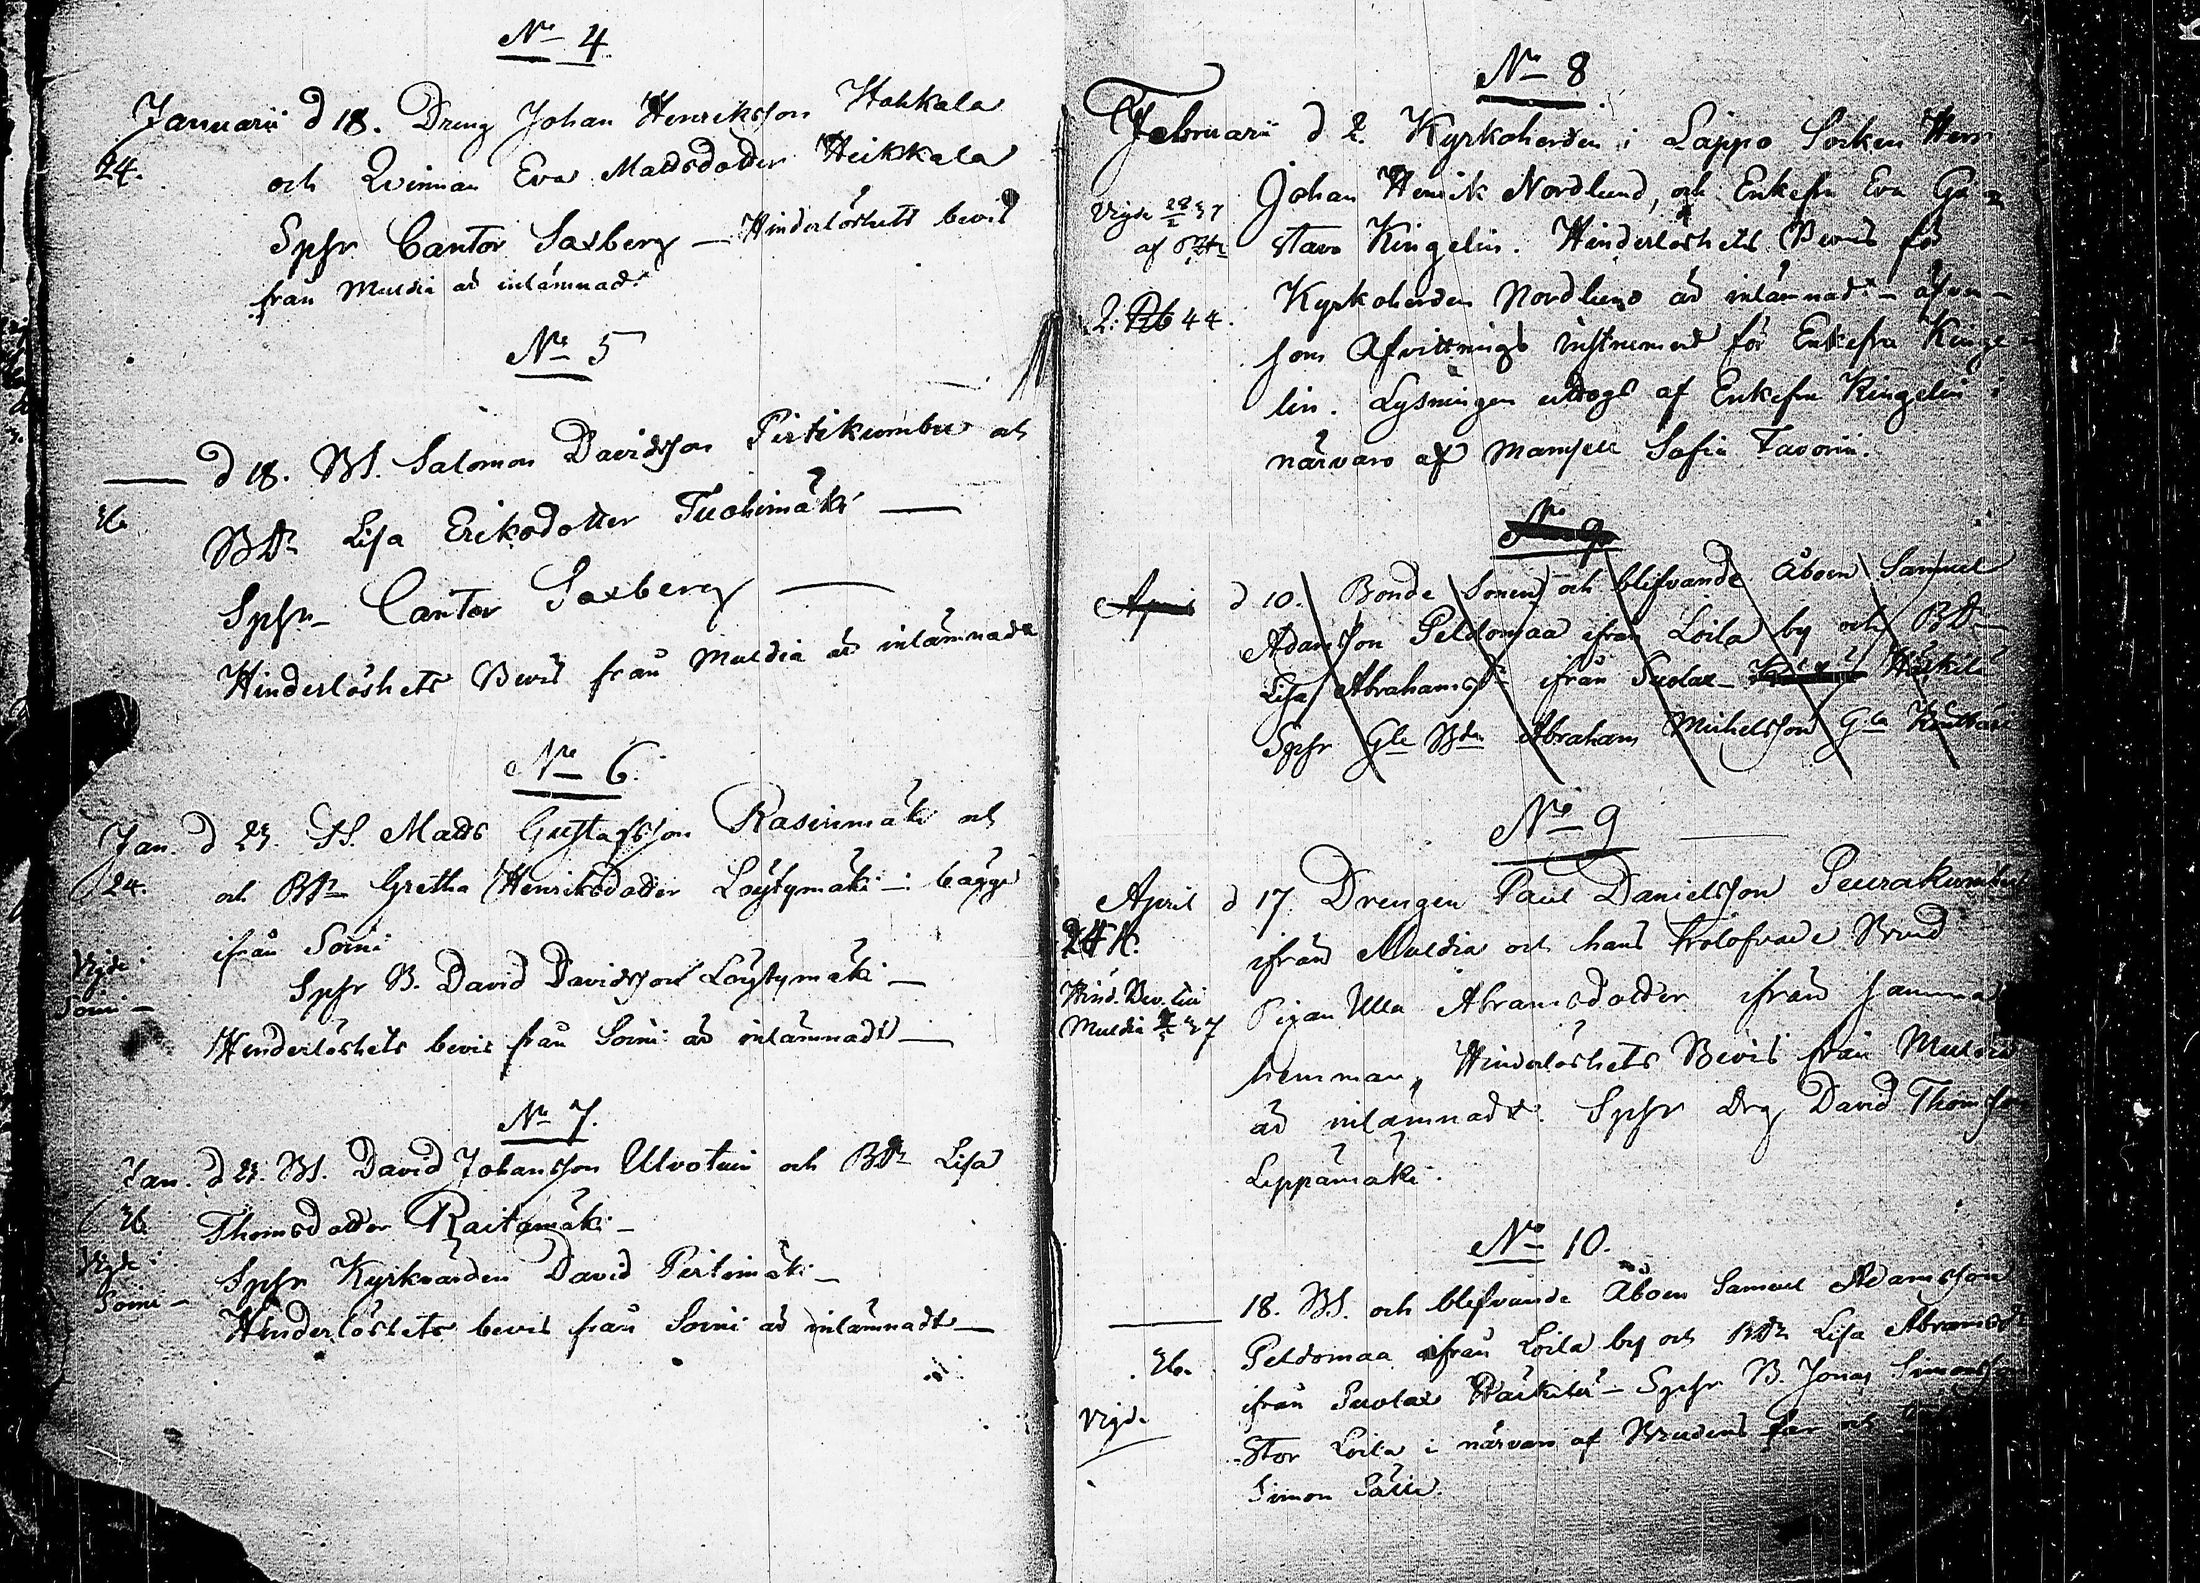 No 4
Januarii d 18. Dreng Johan Henriksson Hahkala
24. och Qvinnan Eva Mattsdotter Heikkala
Spsr Cantor Saxberg — Hinderlöshets bevis
från Multia är inlämnadt
No 5
d 18. BS. Salomon Davidsson Pirtikumbu och
36 BDr Lisa Eriksdotter Tuohimäki —
Spsr Cantor Saxberg —
Hinderlöshets Bevis från Multia är inlämnadt
No 6.
Jan. d 23. TS. Matts Gustafsson Rasinmäki och
24. och BDr Gretha Henriksdotter Löytymäki — bägge
ifrån Soini
Vigde i Soini — Spsr B. David Davidsson Löytymäki —
Hinderlöshets bevis från Soini är inlämnadt —
No 7.
Jan. d 23. BS. David Johansson Ulvotuin och BDr Lisa
36 Thomsdotter Raitamäki —
Vigde i Soini — Spsr Kyrkvärden David Pirtimäki —
Hinderlöshets bevis från Soini är inlämnadt —
No 8.
Februarii d 2. Kyrkoherden i Lappo Socken Herr
Vigde 28/2 37 Johan Henrik Nordlund, och Enkefru Eva Gu=
af stava Kingelin. Hinderlöshets Bevis för
2: Rb 44. Kyrkoherden Nordlund är inlämnadt — äfven-
som Afvittnings instrument för Enkefru Kinge
lin. Lysningen uttogs af Enkefru Kingelin i
närvaro af Mamsell Sofia Tavonii.
No 9
April d 10. Bonde Sonen och blifvande Åboen Samuel
Adamsson Peldomaa ifrån Loila by och BDr
Lisa Abrahamsdr ifrån Suolax Härkilä
Spsr Gle Bdn Abraham Michelsson Gla
No 9
April d 17. Drengen Paul Danielsson Peurakumbu
24 K. ifrån Multia och hans trolofvade Brud
Hind. Bev. till Pigan Ulla Abramsdotter ifrån samma
Multia 37 hemman, Hinderlöshets Bevis från Multia
är inlämnadt. Spsr drg David Thomsson
Leppämäki.
No 10.
18. BS. och blifvande Åboen Samuel Adamsson
36. Peldomaa ifrån Loila by och BDr Lisa Abramsdr
ifrån Suolax Härkilä — Spsr B. Jonas Simonsson
Vigde Stor Loila i närvaro af Brudens far och
Simon Sälli.